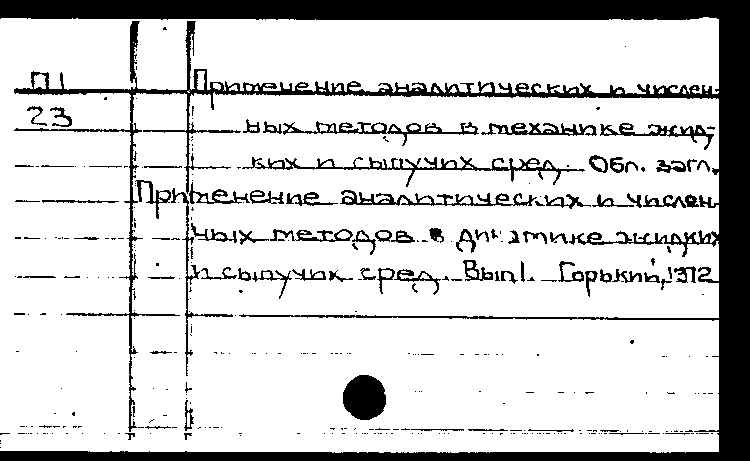 П1 Применение аналитических и числен-
23 ных методов в механике жид-
ких и сыпучих сред. Обл. загл.
Применение аналитических и числен-
ных методов в динамике жидких
и сыпучих сред. Вып1. Горький, 1972